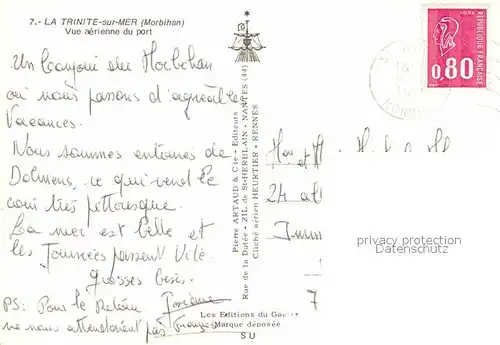 7.- LA TRINITE-sur-MER (Morbihan)
Vue aérienne du port
Un bonjour du Morbihan
où nous passons d'agréable
Vacances.
Nous sommes entourés de
Dolmens, ce qui rend le
coin très pittoresque.
La mer est belle et
les Journées passent vite.
Grosses bises.
PS: Pour le Retour
ne nous attendaient pas
Pierre ARTAUD & Cie - Editeurs
Rue de la Dutée - ZIL de St-HERBLAIN - NANTES (44)
Cliché aérien HEURTIER - RENNES
Les Editions du
Marque déposée
S U
REPUBLIQUE FRANÇAISE
0,80
et
24
7
privacy protection
Datenschutz